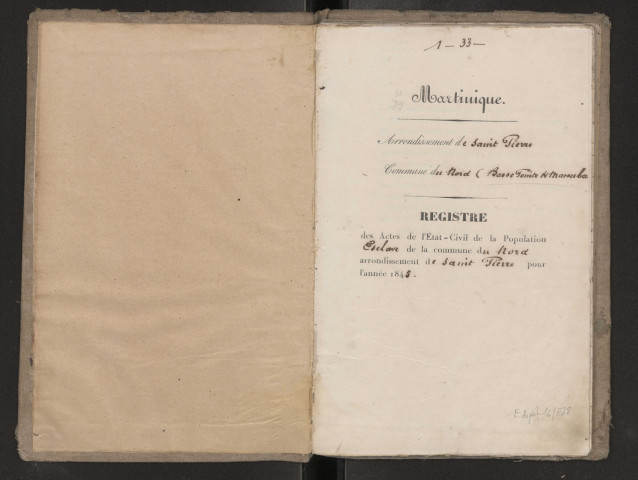 1 – 33 –
Martinique.
Arrondissement de Saint Pierre
Commune du Nord ( Basse Pointe et Macouba
REGISTRE
des Actes de l'État-Civil de la Population
Esclave de la commune du Nord
arrondissement de Saint Pierre pour
l'année 1845.
E dépôt 16/